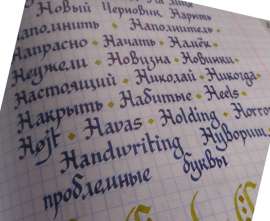 Новый Черновик Нарыть
Напомнить Наполнитель
Напрасно • Начать • Намёк
Неужели • Новизна • Новинки
Настоящий • Николай • Никогда
Накрыть • Набитые • Heels
Højt • Havas • Holding
Handwriting Нувориш
проблемные буквы